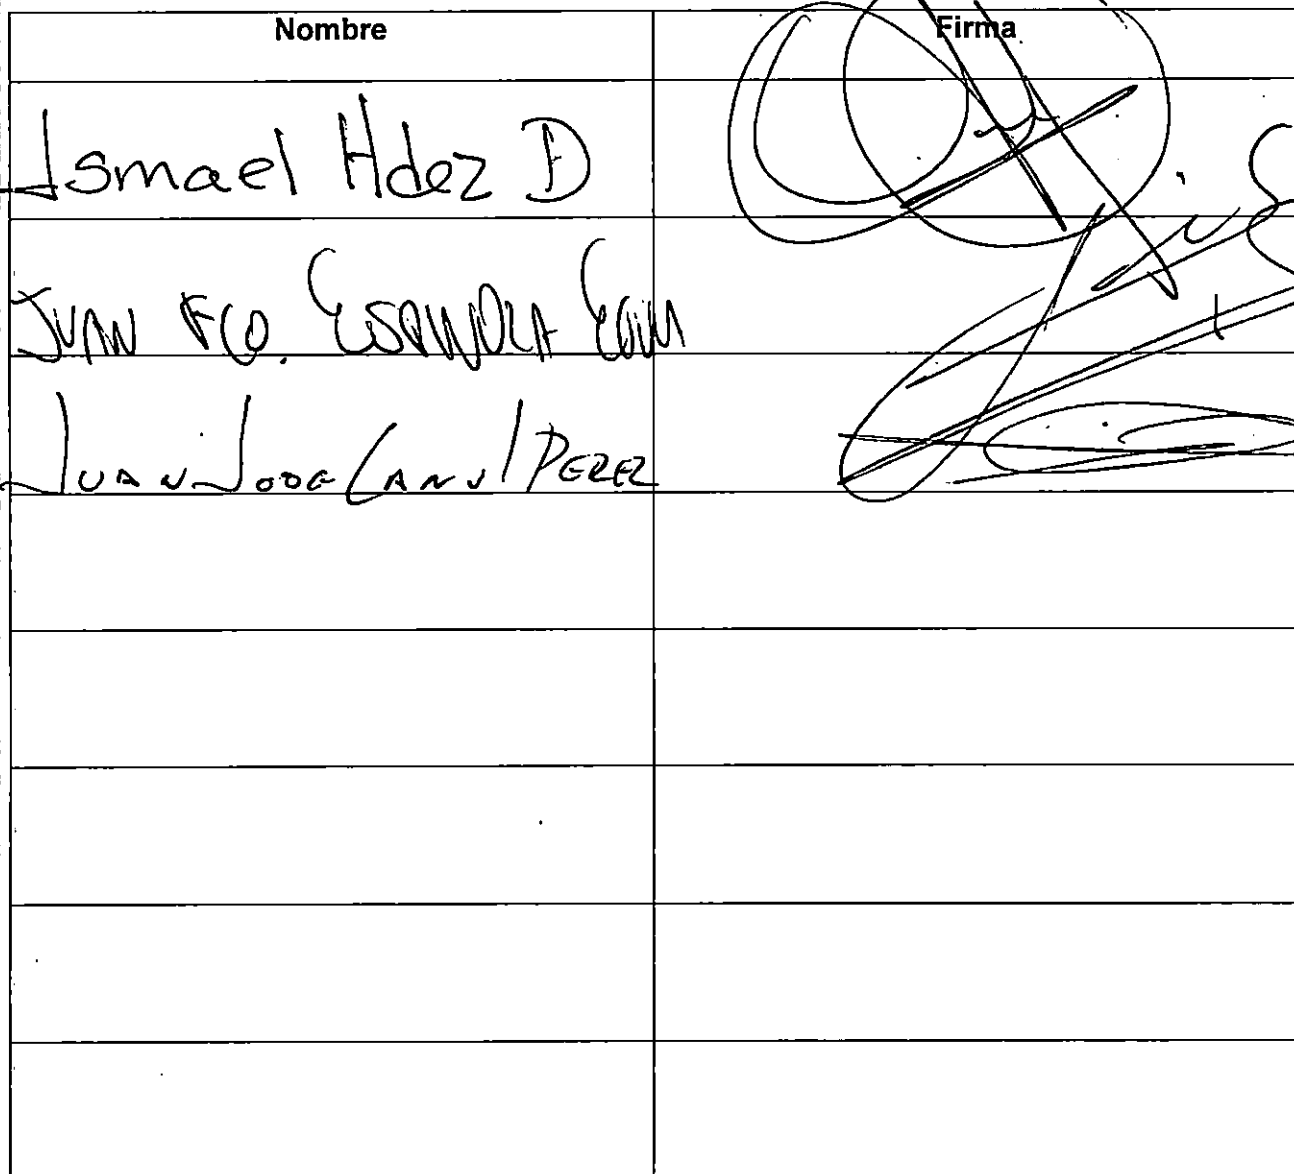 Nombre Firma
Ismael Hdez D
JUAN FCO. ESPINOZA
JUAN JOSE CANUL PEREZ